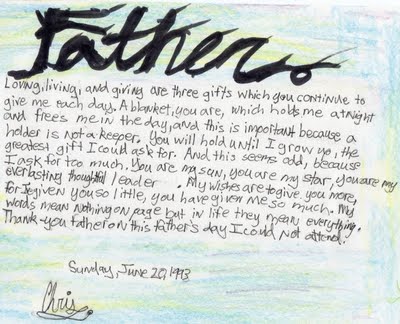 Father.
Loving, living, and giving are three gifts which you continue to
give me each day. A blanket, you are, which holds me at night
and frees me in the day, and this is important because a
holder is not a keeper. You will hold until I grow up, the
greatest gift I could ask for. And this seems odd, because
I ask for too much. You are my sun, you are my star, you are my
everlasting thoughtful leader. My wishes are to give you more,
for I given you so little, you have given me so much. My
words mean nothing on page but in life they mean everything.
Thank-you father on this father's day I could not attend.
Sunday, June 20, 1993
Chris.